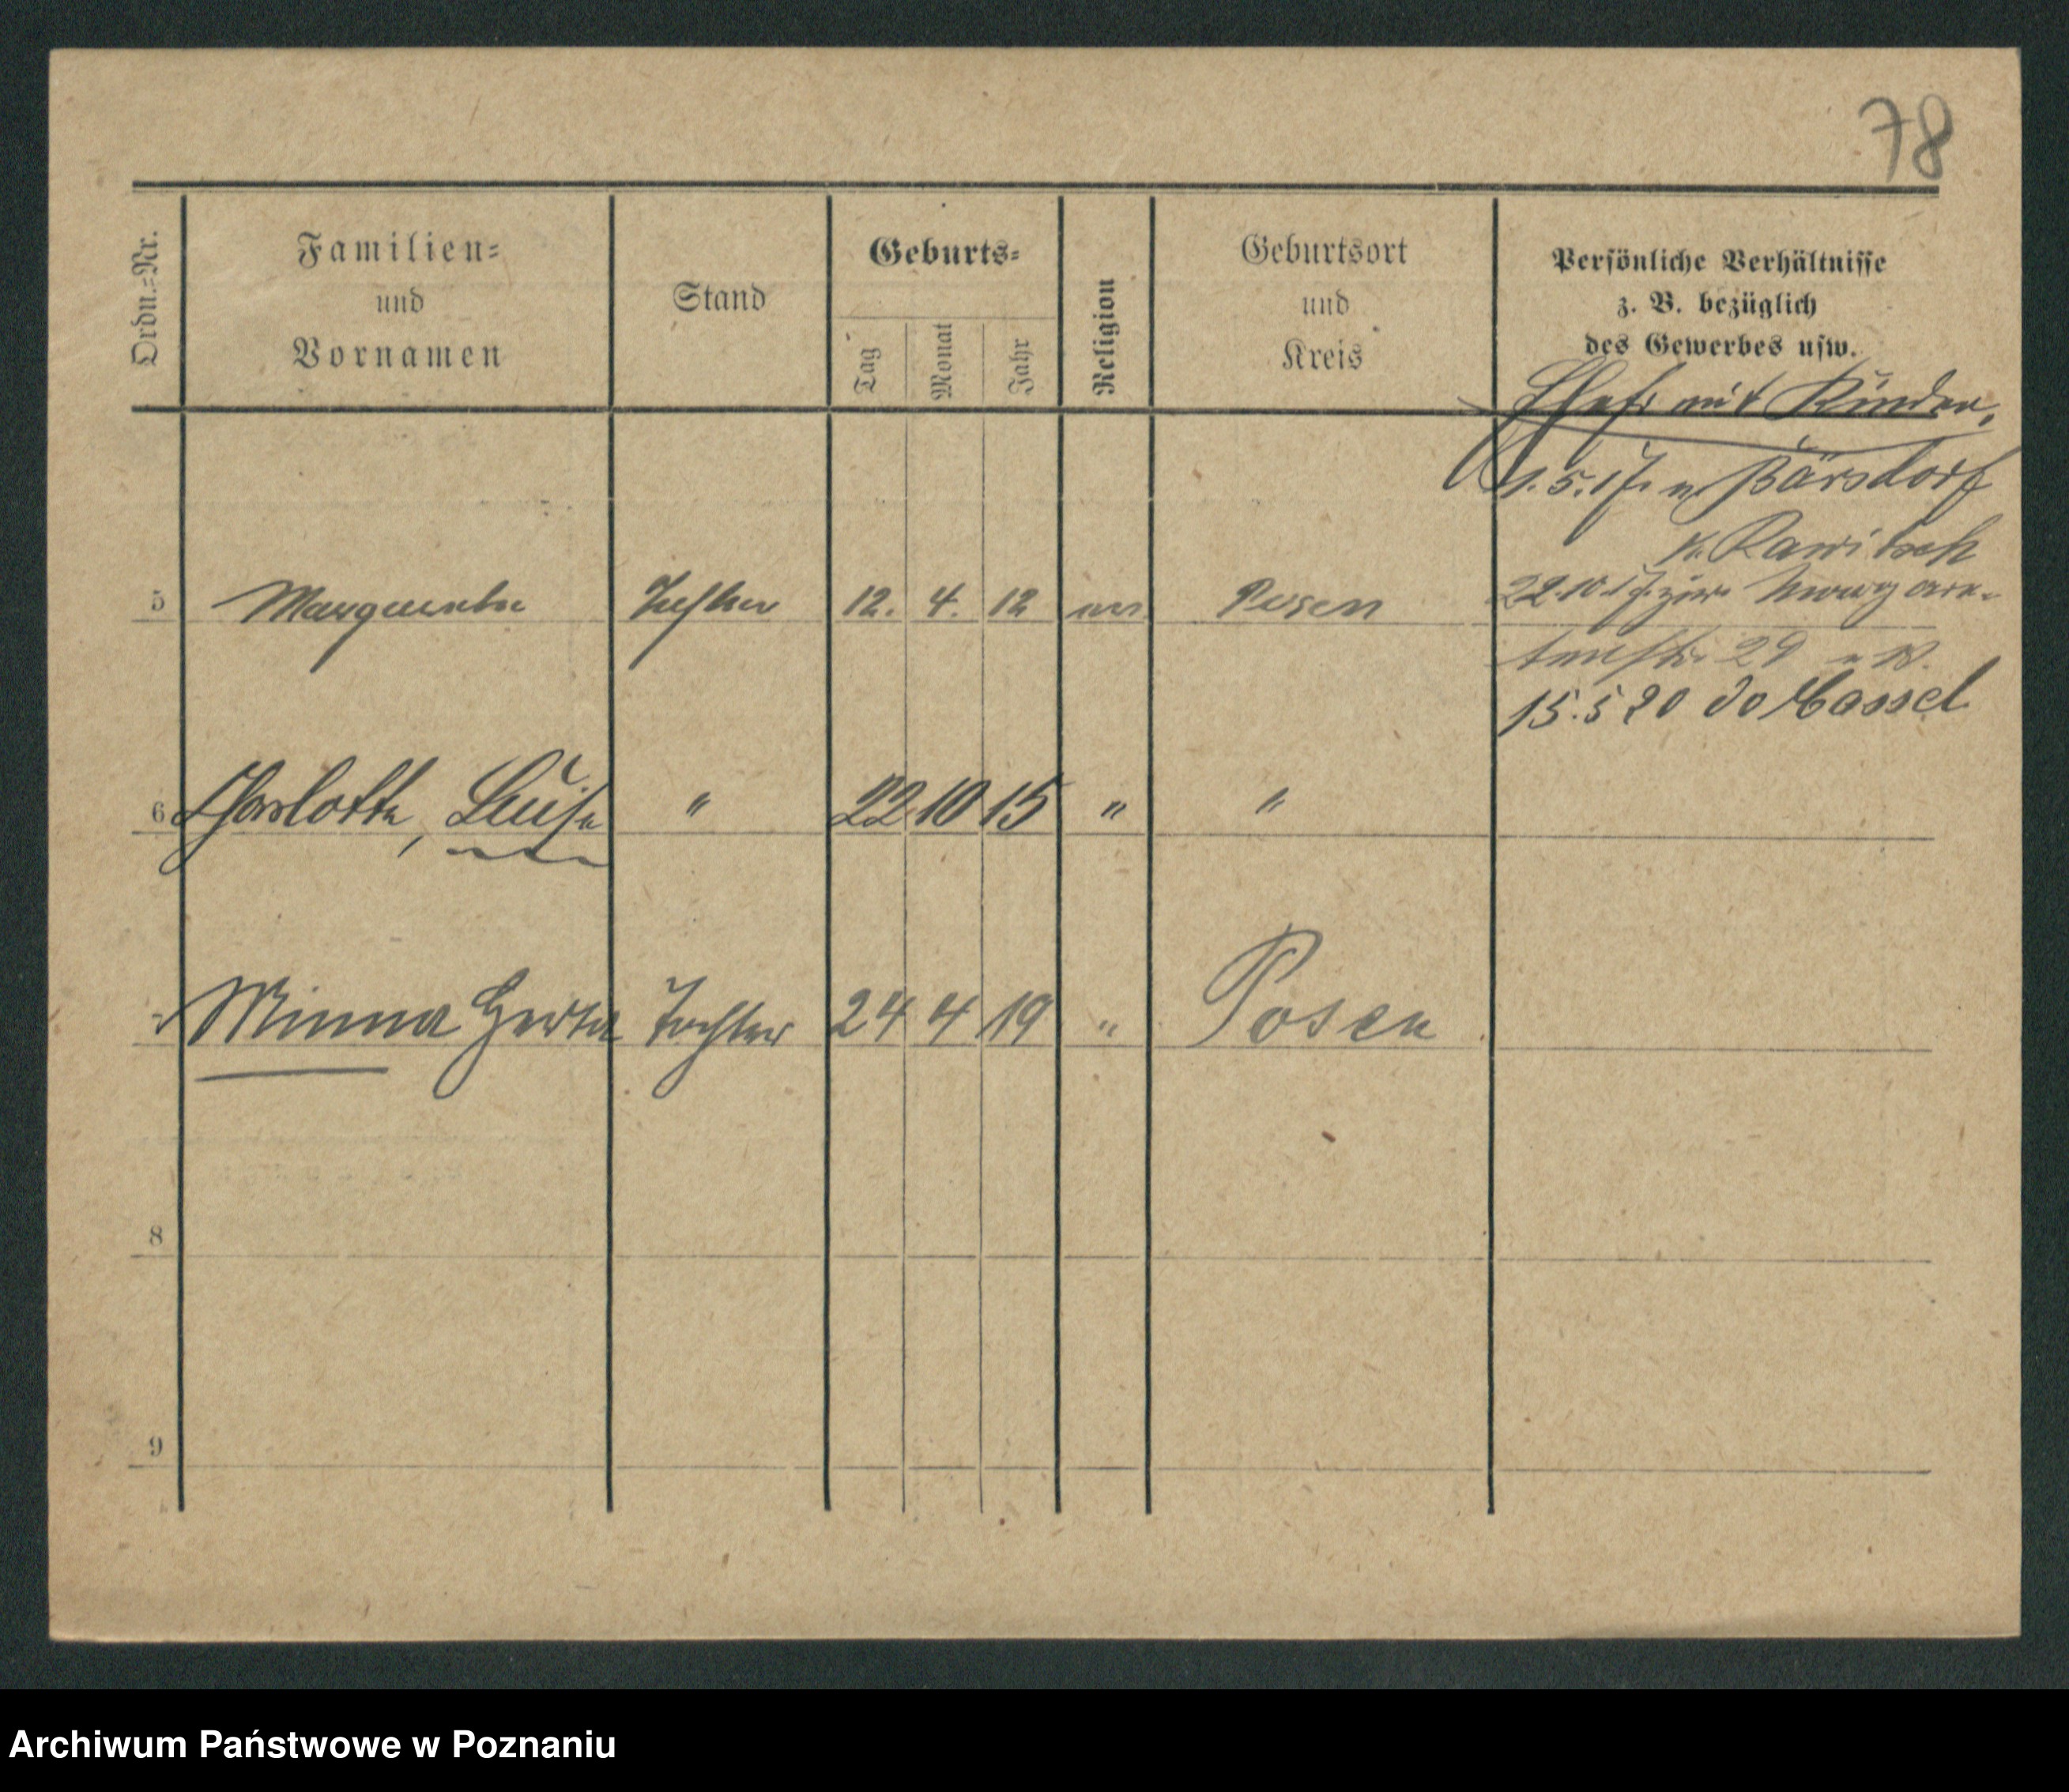 78
Ordn.-Nr.
Familien-
und
Vornamen
Stand
Geburts-
Tag
Monat
Jahr
Religion
Geburtsort
und
Kreis
Persönliche Verhältnisse
z. B. bezüglich
des Gewerbes usw.
Ehefr mit Kinder,
1.5.17. n Bärsdorf
K. Rawitsch
5 Margarethe Tochter 12. 4. 12 ev Posen 22.10.17
29
15.5 20 do Cassel
6 Charlotte, Luise " 22 10 15 " "
Minna Herta Tochter 24 4 19 " Posen
8
9
Archiwum Państwowe w Poznaniu